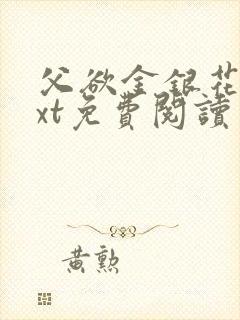 父欲金銀花
xt免費閱讀
黃勲